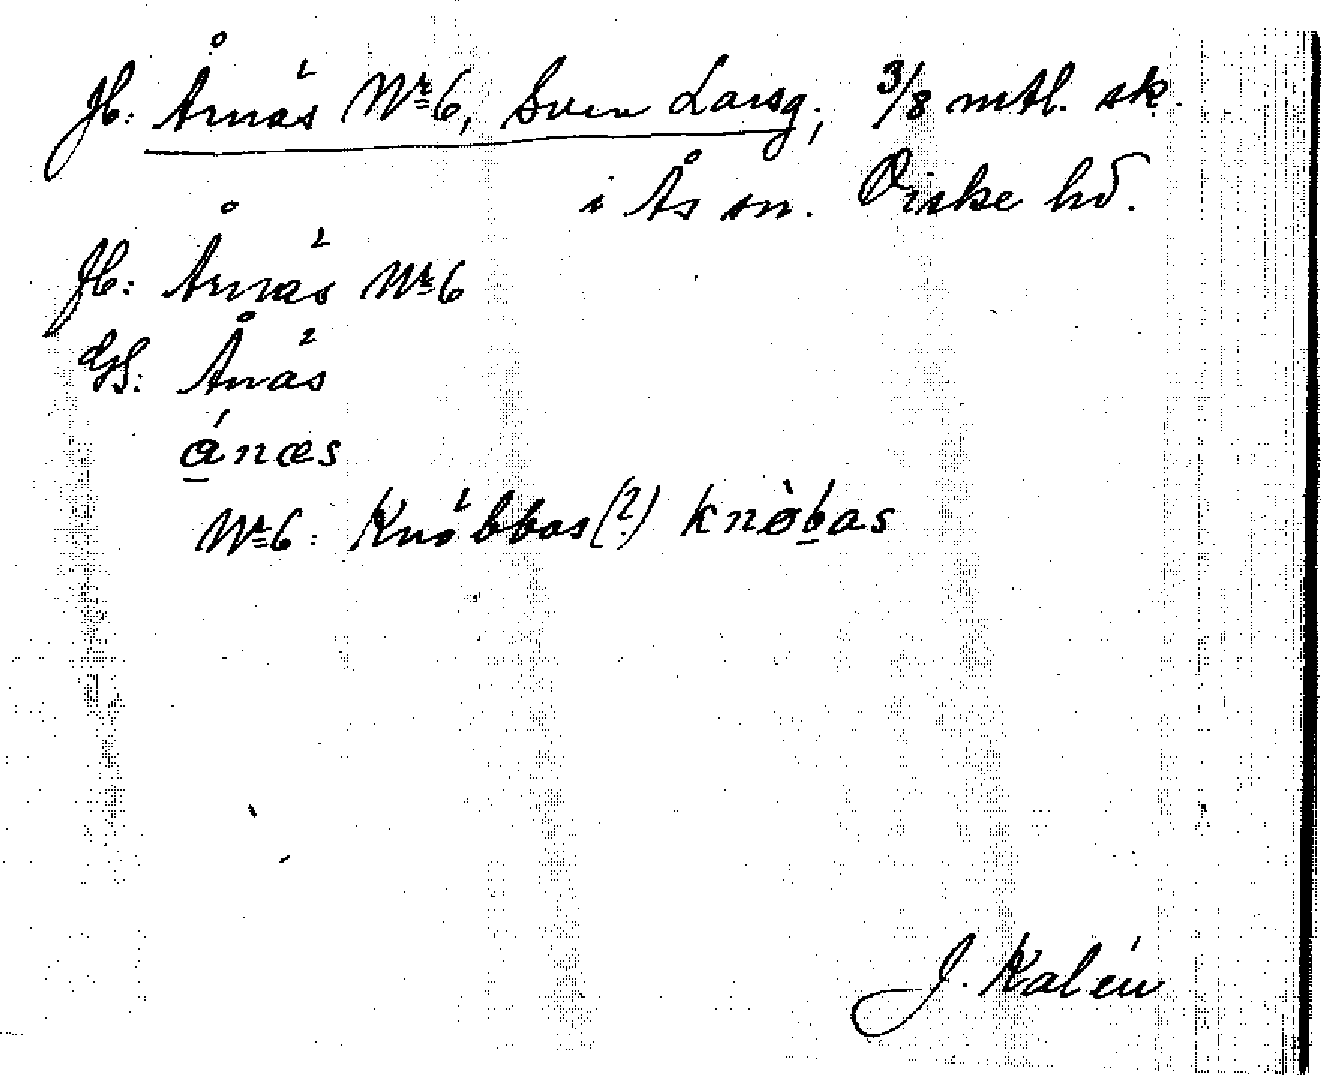 Jb: Årnäs № 6, Sven Larsg; 3/8 mtl. sk.
i Ås sn. Viske hd.
Jb: Årnäs № 6
GS: Ånäs
ánæs
№ 6: Knäbbas(?) knòbas
J. Kalén